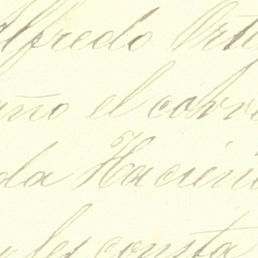 Alfredo Ortu
uño el corre
da Haciend
y les consta